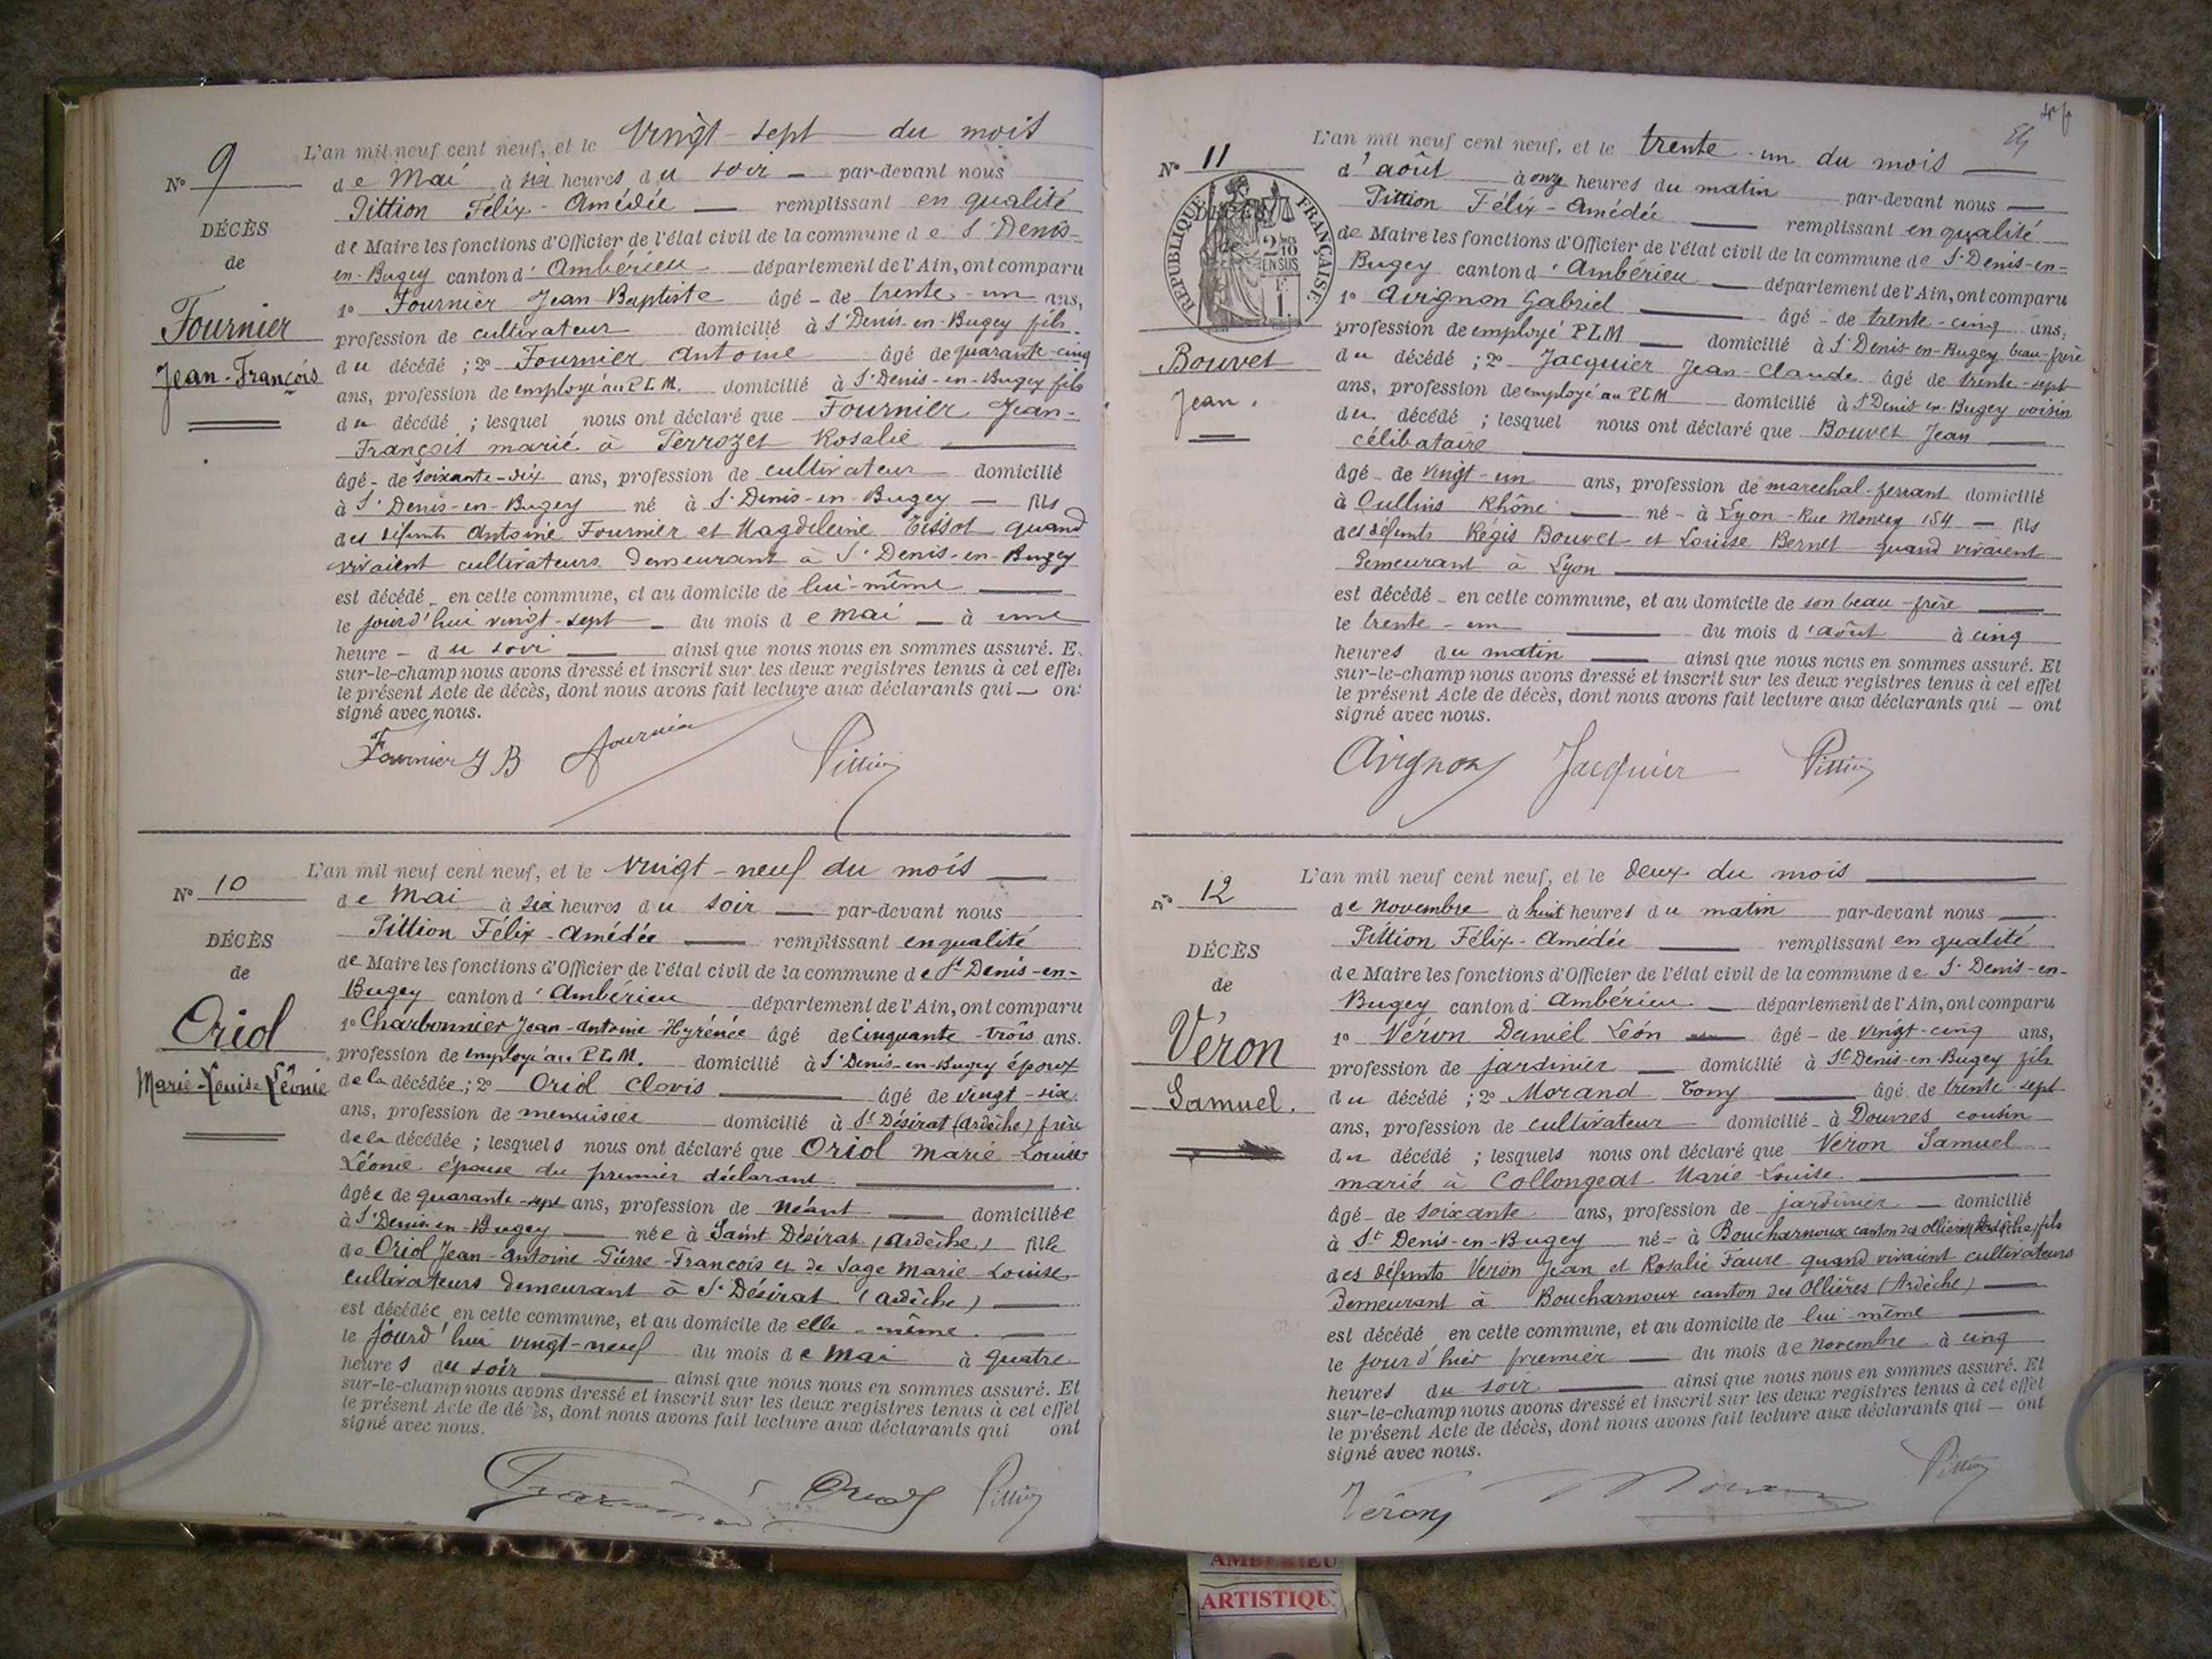 L'an mil neuf cent neuf, et le Vingt-sept du mois
N° 9
de Mai à six heures du soir par-devant nous
Pittion Félix-Amédée remplissant en qualité
DÉCÈS
de Maire les fonctions d'Officier de l'état civil de la commune de St Denis-
de
en-Bugey canton d'Ambérieu département de l'Ain, ont comparu
1° Fournier Jean-Baptiste âgé de trente-un ans,
Fournier
profession de cultivateur domicilié à St Denis-en-Bugey fils
Jean-François
du décédé ; 2° Fournier Antoine âgé de quarante-cinq
ans, profession de employé au P.L.M. domicilié à St Denis-en-Bugey fils
du décédé ; lesquel nous ont déclaré que Fournier Jean-
François marié à Perrozet Rosalie
âgé de soixante-dix ans, profession de cultivateur domicilié
à St Denis-en-Bugey né à St Denis-en-Bugey fils
des défunts Antoine Fournier et Magdeleine Tissot quand
vivaient cultivateurs demeurant à St Denis-en-Bugey
est décédé en cette commune, et au domicile de lui-même
le jourd'hui vingt-sept du mois de mai à une
heure du soir ainsi que nous nous en sommes assuré. E
sur-le-champ nous avons dressé et inscrit sur les deux registres tenus à cet effe
le présent Acte de décès, dont nous avons fait lecture aux déclarants qui on
signé avec nous.
Fournier J B Fournier Pittion
L'an mil neuf cent neuf, et le vingt-neuf du mois
N° 10
de Mai à six heures du soir par-devant nous
Pittion Félix-Amédée remplissant en qualité
DÉCÈS
de Maire les fonctions d'Officier de l'état civil de la commune de St Denis-en-
de
Bugey canton d'Ambérieu département de l'Ain, ont comparu
Oriol
1° Charbonnier Jean-Antoine-Hyrénée âgé de cinquante-trois ans.
profession de employé au P.L.M. domicilié à St Denis-en-Bugey époux
Marie-Louise Léonie
de la décédée ; 2° Oriol Clovis âgé de vingt-six
ans, profession de menuisier domicilié à St Désirat (Ardèche) frère
de la décédée ; lesquels nous ont déclaré que Oriol Marie-Louise
Léonie épouse du premier déclarant
âgée de quarante-sept ans, profession de néant domiciliée
à St Denis-en-Bugey née à Saint Désirat (Ardèche) fille
de Oriol Jean-Antoine-Pierre-François et de Sage Marie-Louise
cultivateurs demeurant à St Désirat (Ardèche)
est décédée en cette commune, et au domicile de elle-même
le jourd'hui vingt-neuf du mois de mai à quatre
heures du soir ainsi que nous nous en sommes assuré. Et
sur-le-champ nous avons dressé et inscrit sur les deux registres tenus à cet effet
le présent Acte de décès, dont nous avons fait lecture aux déclarants qui ont
signé avec nous.
Oriol Pittion
L'an mil neuf cent neuf, et le trente-un du mois
N° 11
d'août à onze heures du matin par-devant nous
Pittion Félix-Amédée remplissant en qualité
RÉPUBLIQUE FRANÇAISE
DÉCÈS
de
2/10 EN SUS
de Maire les fonctions d'Officier de l'état civil de la commune de St Denis-en-
Bugey canton d'Ambérieu département de l'Ain, ont comparu
1° Avignon Gabriel âgé de trente-cinq ans,
profession de employé PLM domicilié à St Denis-en-Bugey beau-frère
Bouvet
du décédé ; 2° Jacquier Jean-Claude âgé de trente-sept
Jean.
ans, profession de employé au PLM domicilié à St Denis-en-Bugey voisin
du décédé ; lesquel nous ont déclaré que Bouvet Jean
célibataire
âgé de vingt-un ans, profession de marechal-ferrant domicilié
à Oullins Rhône né à Lyon-Rue Montey 154 fils
des défunts Régis Bouvet et Louise Bernet quand vivaient
demeurant à Lyon
est décédé en cette commune, et au domicile de son beau-frère
le trente-un du mois d'août à cinq
heures du matin ainsi que nous nous en sommes assuré. Et
sur-le-champ nous avons dressé et inscrit sur les deux registres tenus à cet effet
le présent Acte de décès, dont nous avons fait lecture aux déclarants qui ont
signé avec nous.
Avignon Jacquier Pittion
L'an mil neuf cent neuf, et le deux du mois
N° 12
de Novembre à huit heures du matin par-devant nous
Pittion Félix-Amédée remplissant en qualité
DÉCÈS
de Maire les fonctions d'Officier de l'état civil de la commune de St Denis-en-
de
Bugey canton d'Ambérieu département de l'Ain, ont comparu
Véron
1° Véron Daniel Léon âgé de vingt-cinq ans,
profession de jardinier domicilié à St Denis-en-Bugey fils
Samuel.
du décédé ; 2° Morand Tony âgé de trente sept
ans, profession de cultivateur domicilié à Douvres cousin
du décédé ; lesquels nous ont déclaré que Véron Samuel
marié à Collongeat Marie-Louise
âgé de soixante ans, profession de jardinier domicilié
à St Denis-en-Bugey né à Boucharnoux canton des Ollières Ardèche fils
des défunts Véron Jean et Rosalie Faure quand vivaient cultivateurs
demeurant à Boucharnoux canton des Ollières (Ardèche)
est décédé en cette commune, et au domicile de lui-même
le jour d'hier premier du mois de novembre à cinq
heures du soir ainsi que nous nous en sommes assuré. Et
sur-le-champ nous avons dressé et inscrit sur les deux registres tenus à cet effet
le présent Acte de décès, dont nous avons fait lecture aux déclarants qui ont
signé avec nous.
Véron Pittion
AMBÉRIEU
ARTISTIQU